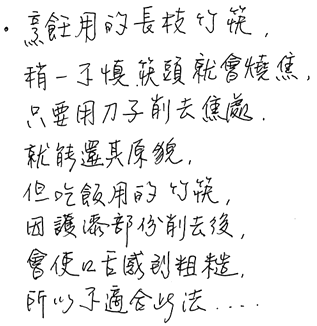 • 烹飪用的長枝竹筷,
稍一不慎筷頭就會燒焦,
只要用刀子削去焦處.
就能還其原貌,
但吃飯用的竹筷,
因護漆部份削去後,
會使口舌感到粗糙,
所以不適合此法....